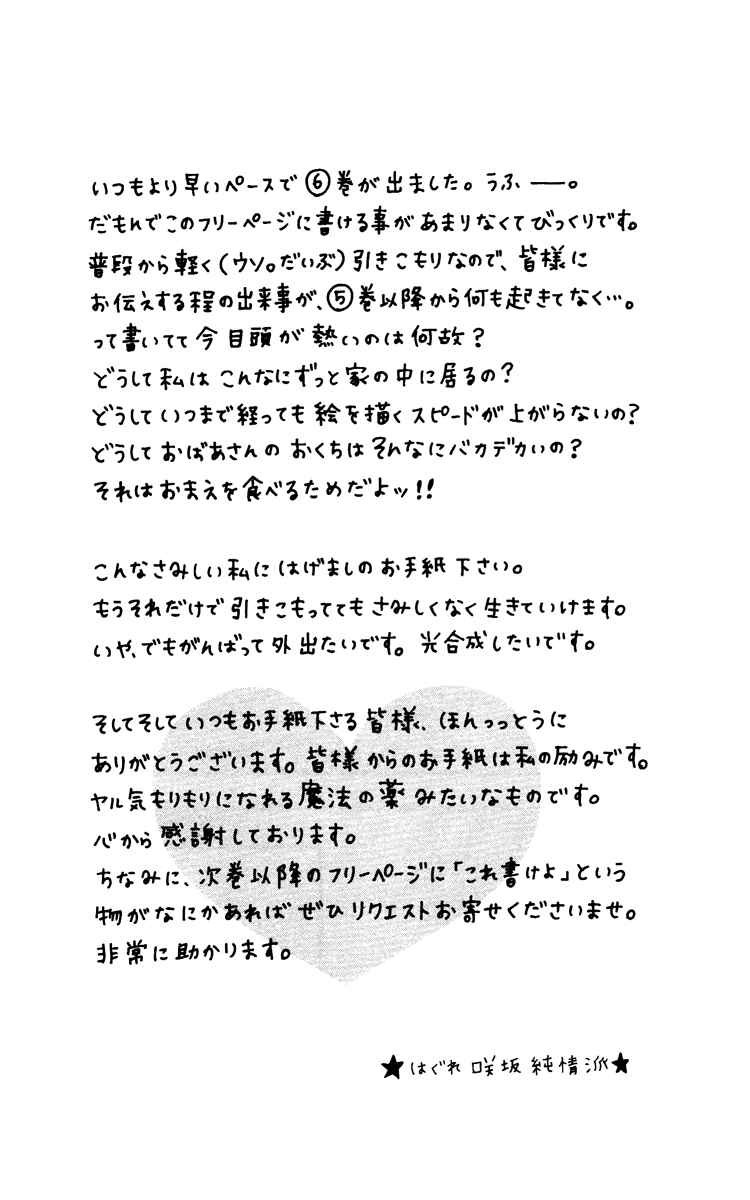 いつもより早いペースで⑥巻が出ました。うふ ──。
だもんでこのフリーページに書ける事があまりなくてびっくりです。
普段から軽く(ウソ。だいぶ)引きこもりなので、皆様に
お伝えする程の出来事が、⑤巻以降から何も起きてなく…。
って書いてて今目頭が熱いのは何故?
どうして私はこんなにずっと家の中に居るの?
どうしていつまで経っても絵を描くスピードが上がらないの?
どうしておばあさんのおくちはそんなにバカデカいの?
それはおまえを食べるためだよッ!!
こんなさみしい私にはげましのお手紙下さい。
もうそれだけで引きこもっててもさみしくなく生きていけます。
いや、でもがんばって外出たいです。光合成したいです。
そしてそしていつもお手紙下さる皆様、ほんっっとうに
ありがとうございます。皆様からのお手紙は私の励みです。
ヤル気もりもりになれる魔法の薬みたいなものです。
心から感謝しております。
ちなみに、次巻以降のフリーページに「これ書けよ」という
物がなにかあればぜひリクエストお寄せくださいませ。
非常に助かります。
★はぐれ咲坂純情派★